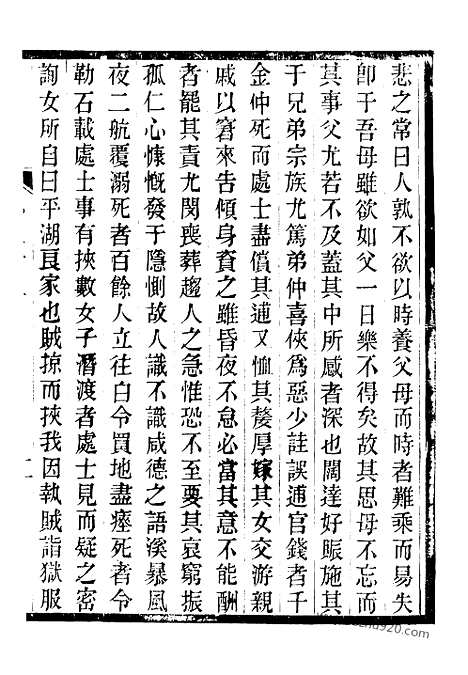 悲之常曰人孰不欲以時養父母而時者難乘而易失
卽于吾母雖欲如父一日樂不得矣故其思母不忘而
其事父尤若不及蓋其中所感者深也闊達好賑施其
于兄弟宗族尤篤弟仲喜俠爲惡少詿誤逋官錢者千
金仲死而處士盡償其逋又恤其嫠厚嫁其女交游親
戚以窘來吿傾身資之雖昏夜不怠必當其意不能酬
者罷其責尤閔喪葬趨人之急惟恐不至要其哀窮振
孤仁心慷慨發于隱惻故人識不識咸德之語溪暴風
夜二航覆溺死者百餘人立往白令買地盡瘞死者令
勒石載處士事有挾數女子潛渡者處士見而疑之密
詢女所自曰平湖良家也賊掠而挾我因執賊詣獄服